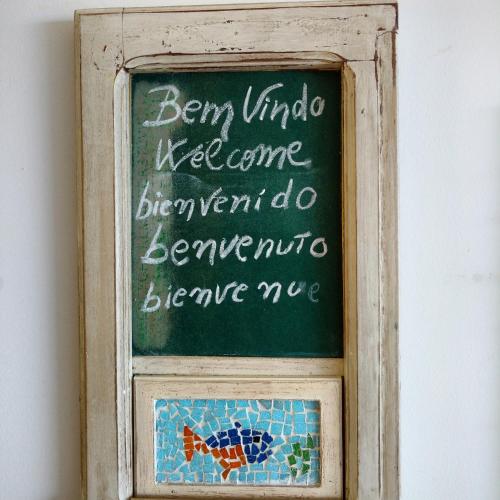 Bem Vindo
Welcome
bienvenido
benvenuto
bienvenue